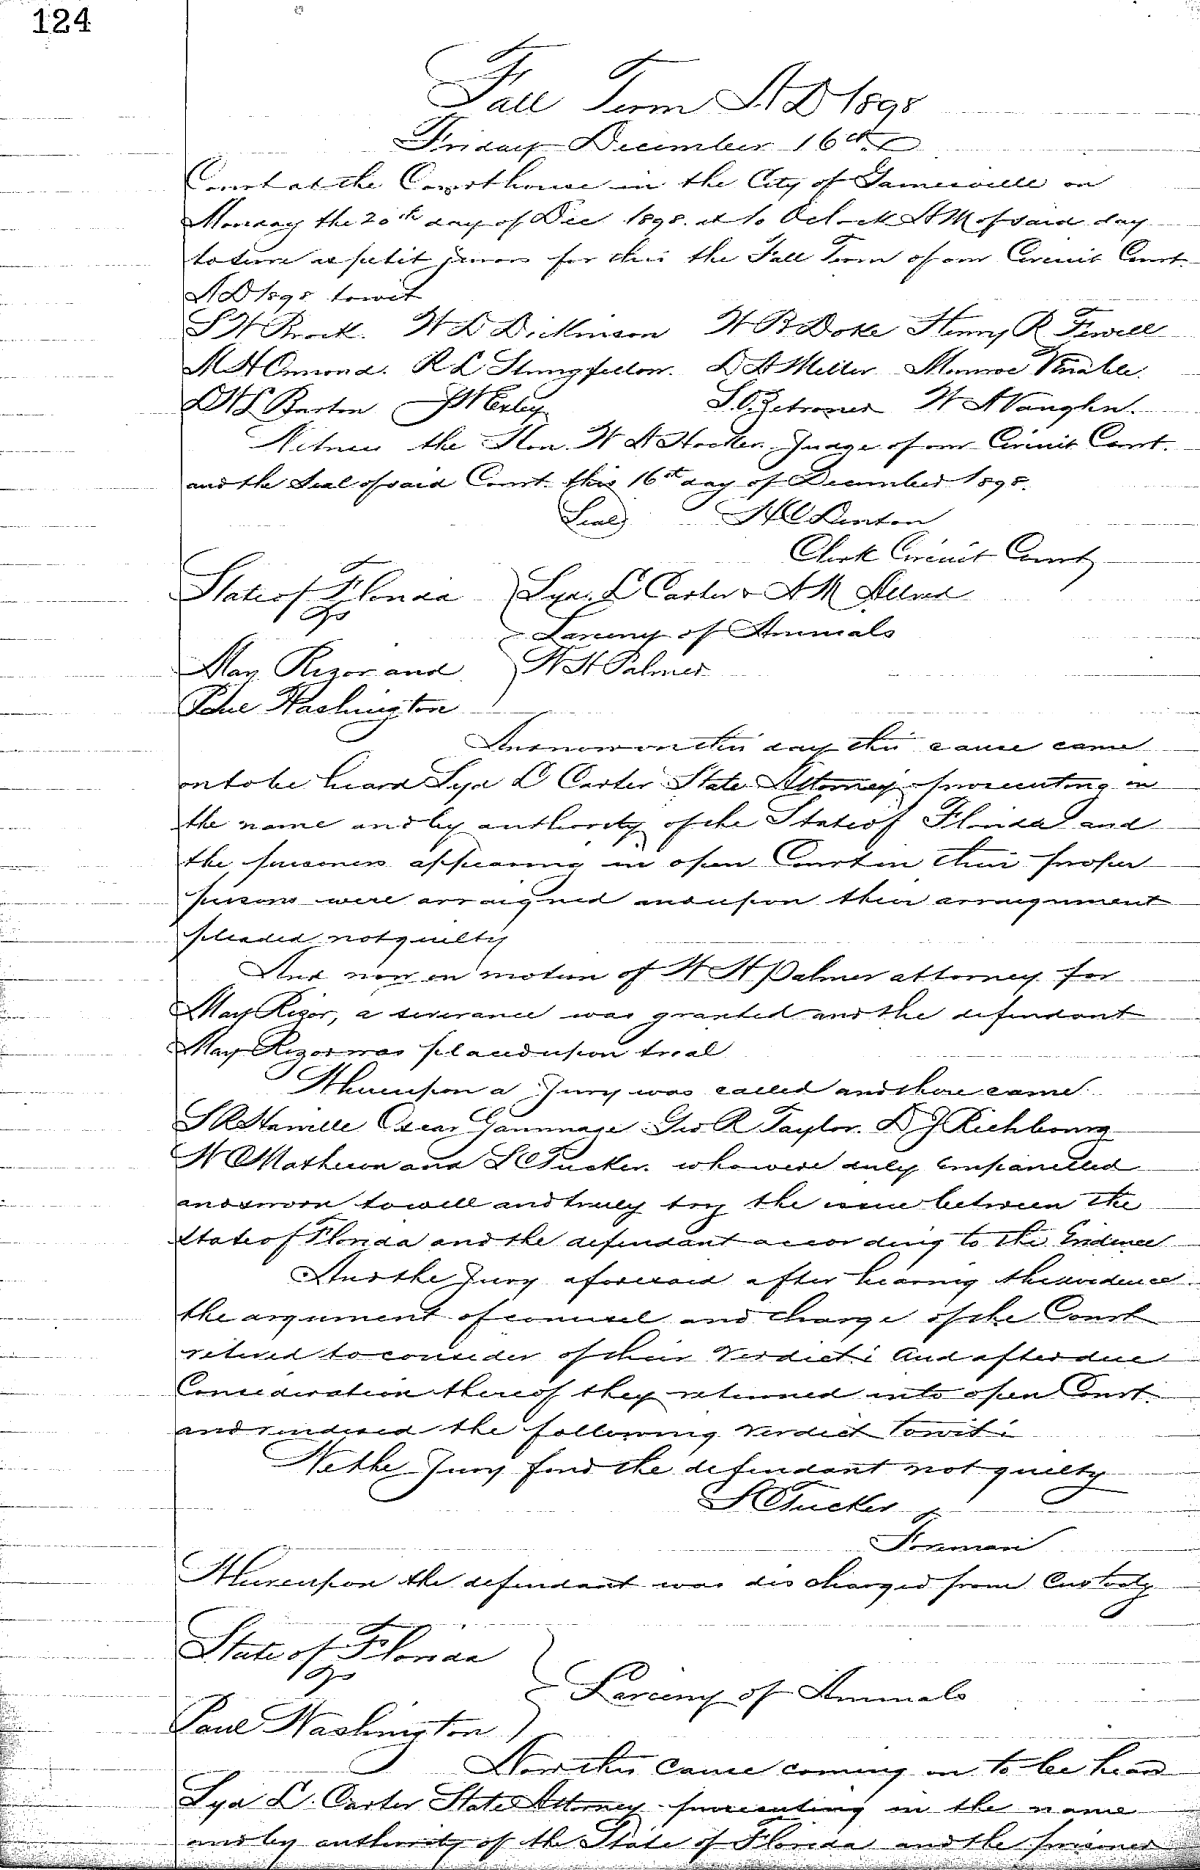 124
Fall Term A.D 1898
Friday December 16th
Court at the Courthouse in the City of Gainesville on
Monday the 20th day of Dec 1898. at 10 Oclock A M of said day
to serve as petit jurors for this the Fall Term of our Circuit Court.
A D 1898 towit
S H Brock. W D Dickinson W B Doke Henry R Fewell
M H Ormond. R L Stringfellow. D A Miller Monroe Venable.
W S Barton J W Exley S. O. Zetrouer W A Vaughn.
Witness the Hon. W A Hocker Judge of our Circuit Court.
and the Seal of said Court this 16th day of December 1898.
(Seal) H C Denton
Clerk Circuit Court
State of Florida Syd. L Carter & A M Allred
vs Larceny of Animals
May Rizor and W H Palmer
Paul Washington
And now on this day this cause came
on to be heard Syd L Carter State Attorney prosecuting in
the name and by authority of the State of Florida and
the prisoners appearing in open Court in their proper
persons were arraigned and upon their arraignment
pleaded not guilty
And now on motion of W H Palmer attorney for
May Rizor, a severance was granted and the defendant
May Rizor was placed upon trial
Whereupon a Jury was called and there came
S R Hamille Oscar Gammage Geo R Taylor. D J Richbourg
W C Matheson and S C Tucker. who were duly Empanelled
and sworn to well and truly try the issue between the
State of Florida and the defendant according to the Evidence
And the Jury aforesaid after hearing the evidence
the argument of counsel and charge of the Court
retired to consider of their Verdict: And after due
Consideration thereof they returned into open Court.
and rendered the following verdict towit:
We the Jury find the defendant not guilty
S C Tucker
Foreman
Whereupon the defendant was discharged from Custody
State of Florida
vs Larceny of Animals
Paul Washington
Now this cause coming on to be heard
Syd L. Carter State Attorney prosecuting in the name
and by authority of the State of Florida and the prisoner